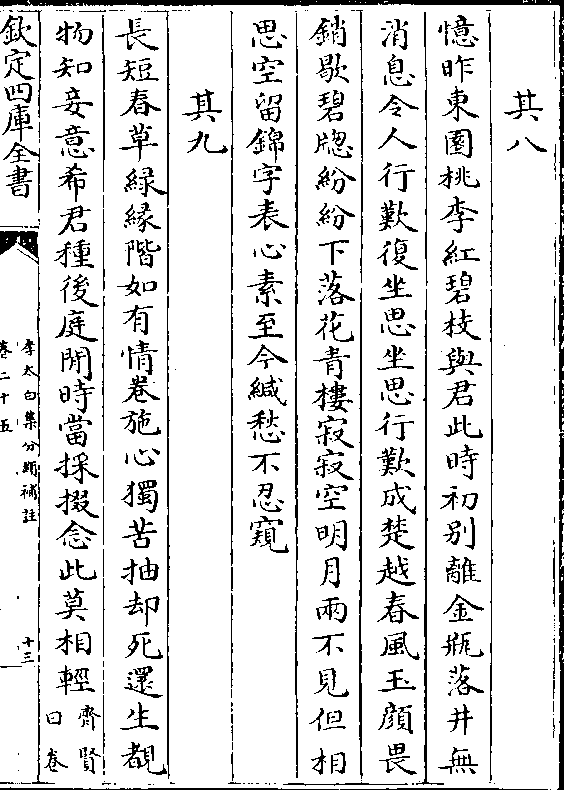 其八
憶昨東園桃李紅碧枝與君此時初别離金瓶落井無
消息令人行歎復坐思坐思行歎成楚越春風玉顔畏
銷歇碧牕紛紛下落花青樓寂寂空明月兩不見但相
思空留錦字表心素至今緘愁不忍窺
其九
長短春草緑縁階如有情卷施心獨苦抽却死還生覩
物知妾意希君種後庭閒時當採掇念此莫相輕齊賢
曰卷
欽定四庫全書
李太白集分類補註
卷二十五
十三